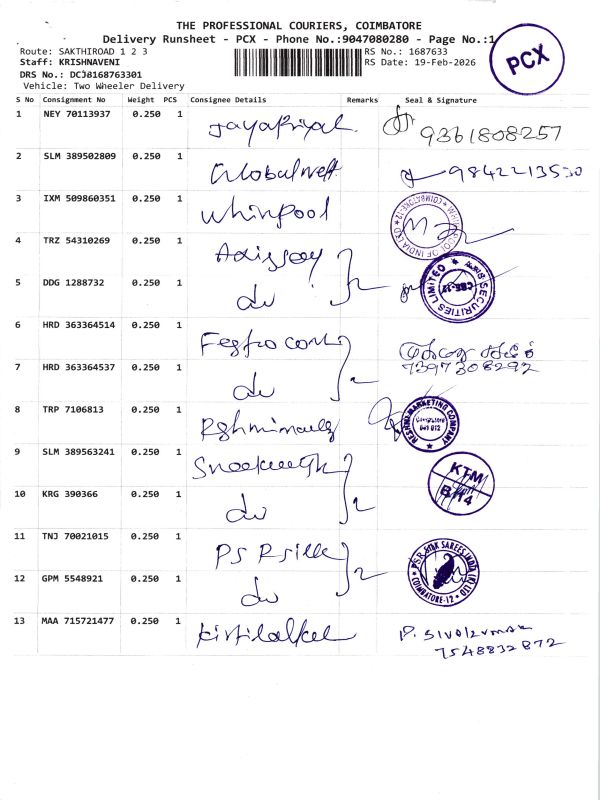 THE PROFESSIONAL COURIERS, COIMBATORE
Delivery Runsheet - PCX - Phone No.:9047080280 - Page No.:1
Route: SAKTHIROAD 1 2 3
RS No.: 1687633
Staff: KRISHNAVENI
RS Date: 19-Feb-2026
DRS No.: DCJ8168763301
Vehicle: Two Wheeler Delivery
PCX
S No Consignment No Weight PCS Consignee Details Remarks Seal & Signature
1 NEY 70113937 0.250 1 Jayapriyal 9361808257
2 SLM 389502809 0.250 1 9842213530
3 IXM 509860351 0.250 1 Whirlpool
4 TRZ 54310269 0.250 1
5 DDG 1288732 0.250 1 do 2 SECURITIES LIMITED
6 HRD 363364514 0.250 1
7 HRD 363364537 0.250 1 do 2 7397308292
8 TRP 7106813 0.250 1 RESHMI MARKETING COMPANY
9 SLM 389563241 0.250 1
10 KRG 390366 0.250 1 do 2 KTM
11 TNJ 70021015 0.250 1 PS R silk
12 GPM 5548921 0.250 1 do 2 P.S.R. SILK SAREES INDIA (K) LTD COIMBATORE-12
13 MAA 715721477 0.250 1 P. Sivakumar
7548832872